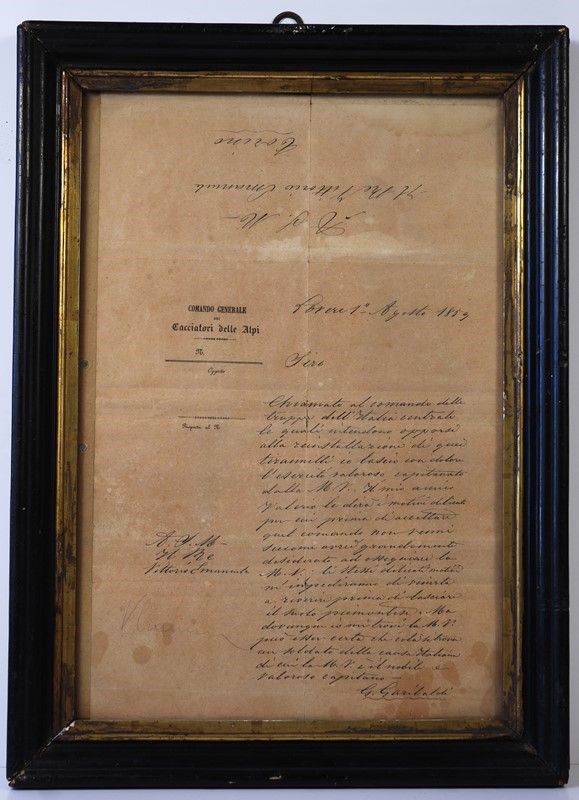 Torino
Il Re Vittorio Emanuele
A S. M.
COMANDO GENERALE
DEI
Cacciatori delle Alpi
N.
Oggetto
Risposta al N.
Lovere 1º Agosto 1859
Sire
Chiamato al comando delle
truppe dell'Italia centrale
le quali intendono opporsi
alla reinstallazione di quei
tirannelli: io lascio con dolore
l'esercito valoroso capitanato
dalla M. V. Il mio amico
Valerio le dirà i motivi delicati
per cui prima di accettare
quel comando non venni
siccome avrei grandemente
desiderato ad ossequiare la
M. V. - le stesse delicati motivi
m'impediranno di venirla
a riverire prima di lasciare
il suolo piemontese. Ma
dovunque io mi trovi la M. V.
può esser certa che colà si trova
un soldato della causa Italiana
di cui la M. V. è il nobile e
valoroso capitano -
G. Garibaldi
A S. M.
Il Re
Vittorio Emanuele